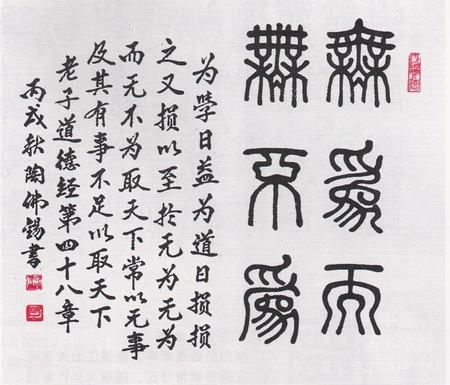 無為而
無不為
为學日益为道日损损
之又损以至於无为无为
而无不为取天下常以无事
及其有事不足以取天下
老子道德经第四十八章
丙戌秋陶佛锡書